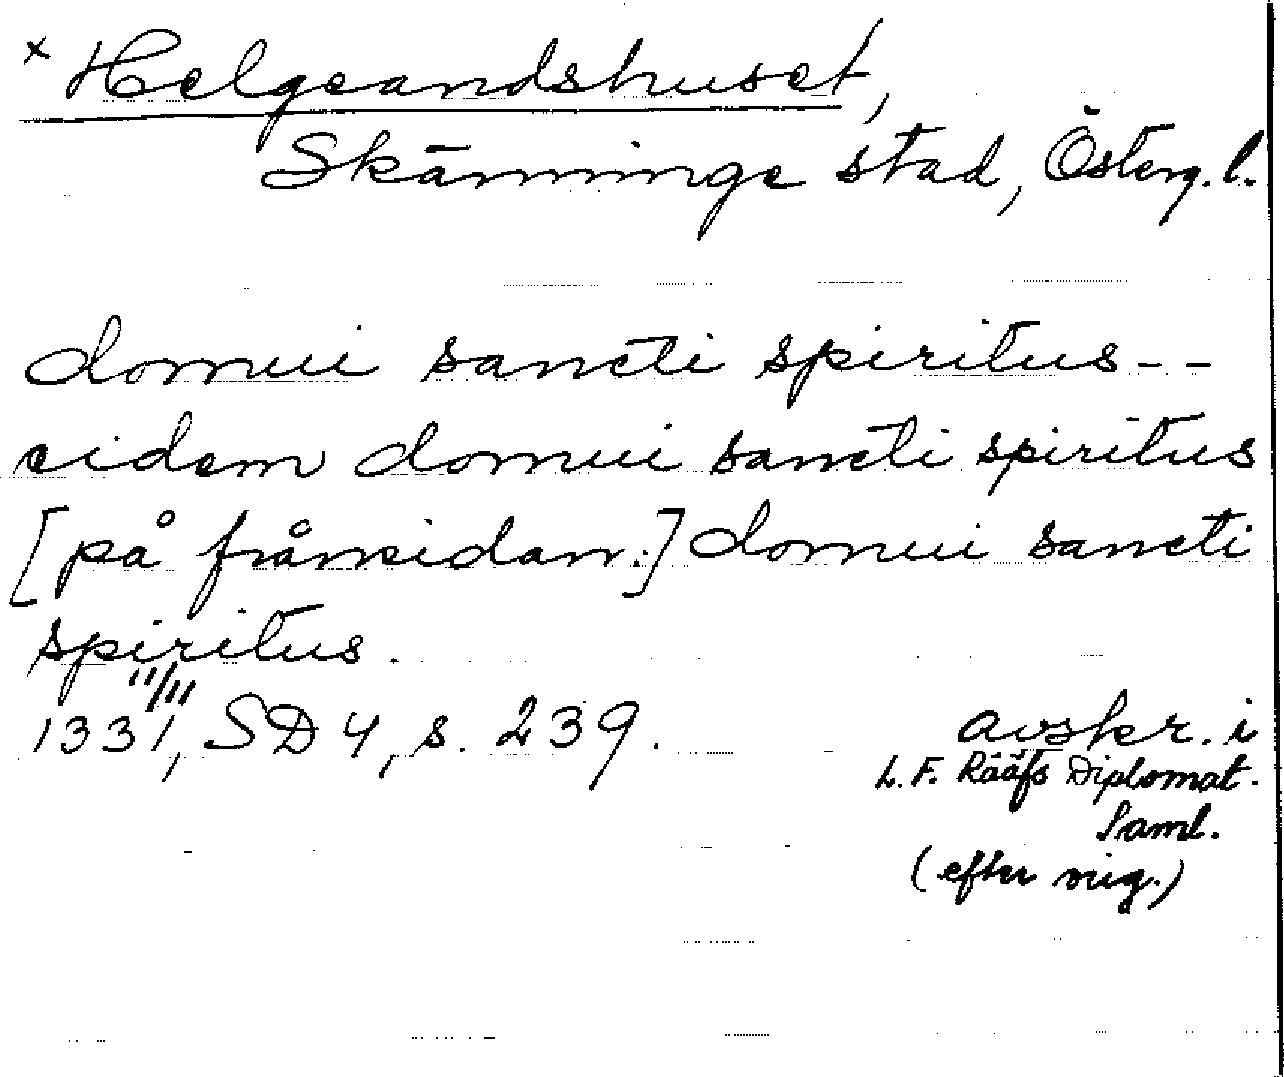 x Helgeandshuset,
Skänninge stad, Österg. l.
domui sancti spiritus - -
eidem domui sancti spiritus
[på frånsidan:] domui sancti
spiritus.
1331 11/11, SD 4, s. 239.
avskr. i
L. F. Rääfs Diplomat.
Saml.
(efter orig.)